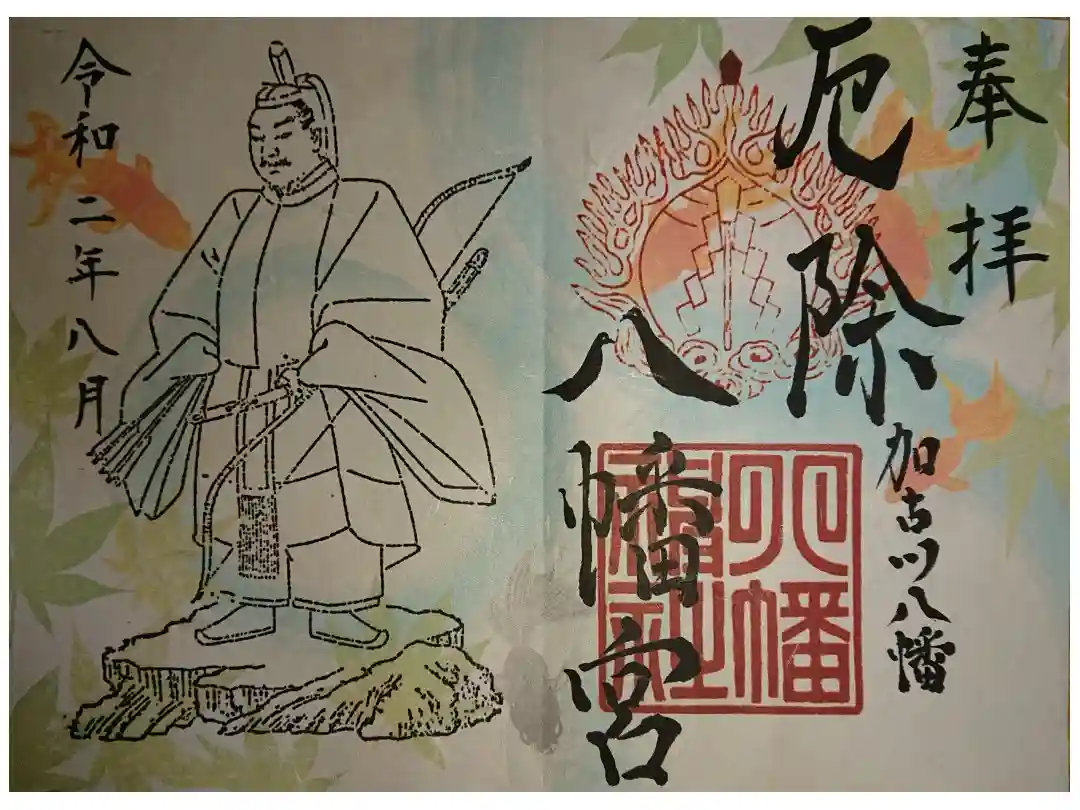 奉拝
厄除
加古川八幡
八幡宮
八幡
神社
令和二年八月